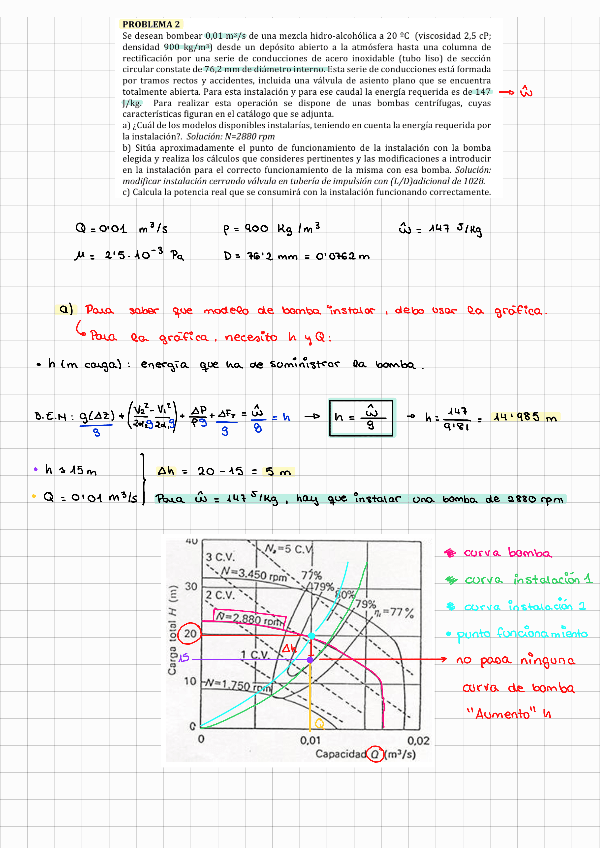 PROBLEMA 2
Se desean bombear 0,01 m³/s de una mezcla hidro-alcohólica a 20 ºC (viscosidad 2,5 cP;
densidad 900 kg/m³) desde un depósito abierto a la atmósfera hasta una columna de
rectificación por una serie de conducciones de acero inoxidable (tubo liso) de sección
circular constate de 76,2 mm de diámetro interno. Esta serie de conducciones está formada
por tramos rectos y accidentes, incluida una válvula de asiento plano que se encuentra
totalmente abierta. Para esta instalación y para ese caudal la energía requerida es de 147 → ŵ
J/kg. Para realizar esta operación se dispone de unas bombas centrífugas, cuyas
características figuran en el catálogo que se adjunta.
a) ¿Cuál de los modelos disponibles instalarías, teniendo en cuenta la energía requerida por
la instalación?. Solución: N=2880 rpm
b) Sitúa aproximadamente el punto de funcionamiento de la instalación con la bomba
elegida y realiza los cálculos que consideres pertinentes y las modificaciones a introducir
en la instalación para el correcto funcionamiento de la misma con esa bomba. Solución:
modificar instalación cerrando válvula en tubería de impulsión con (L/D)adicional de 1028.
c) Calcula la potencia real que se consumirá con la instalación funcionando correctamente.
Q = 0'01 m³/s ρ = 900 Kg/m³ ŵ = 147 J/Kg
μ = 2'5·10⁻³ Pa D = 76'2 mm = 0'0762 m
a) Para saber que modelo de bomba instalar, debo usar la gráfica.
Para la gráfica, necesito h y Q:
• h (m carga): energía que ha de suministrar la bomba.
B.E.M: g(ΔZ)/g + (V₂²/2α₂g - V₁²/2α₁g) + ΔP/ρg + ΔFr/g = ŵ/g = h → h = ŵ/g → h = 147/9'81 = 14'985 m
• h ≈ 15 m Δh = 20 - 15 = 5 m
• Q = 0'01 m³/s Para ŵ = 147 J/Kg, hay que instalar una bomba de 2880 rpm
40
3 C.V.
Nₐ=5 C.V.
N=3.450 rpm
77%
79%
80%
79%
η=77%
30
2 C.V.
N=2.880 rpm
20
15
1 C.V.
Δh
10
N=1.750 rpm
Q
0
0
0,01
0,02
Carga total H (m)
Capacidad Q (m³/s)
curva bomba
curva instalación 1
curva instalación 2
punto funcionamiento
no pasa ninguna
curva de bomba
"Aumento" h